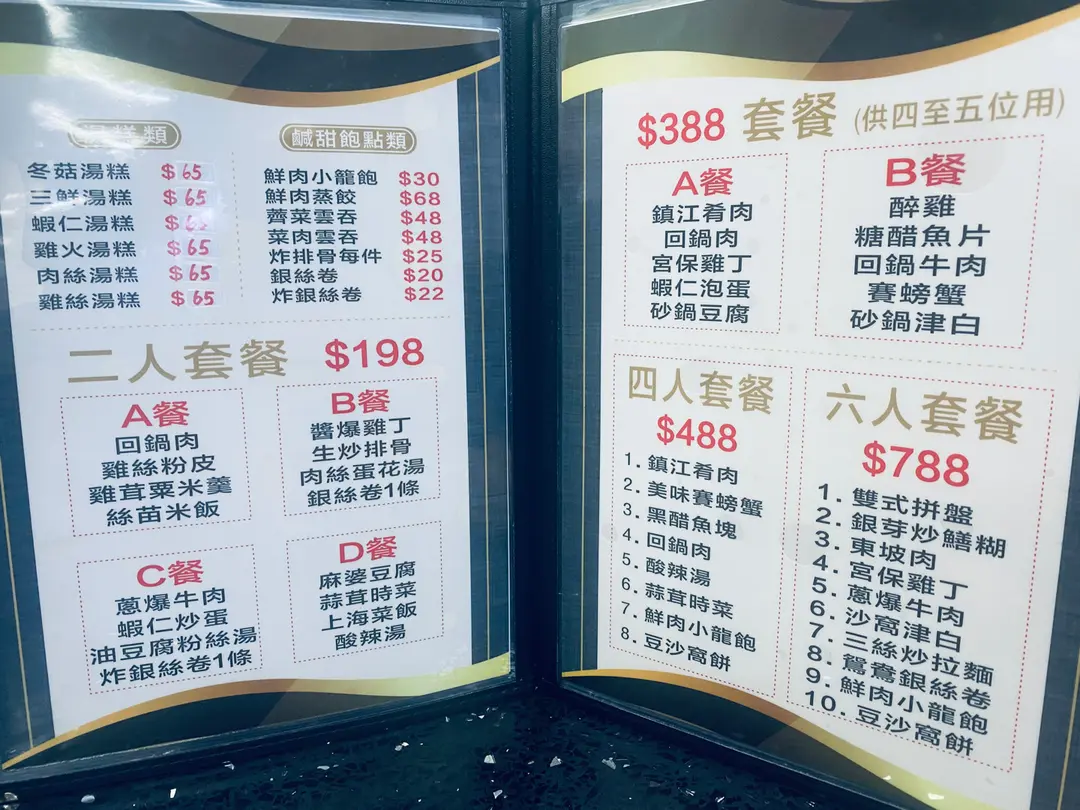 湯糕類
冬菇湯糕 $65
三鮮湯糕 $65
蝦仁湯糕 $65
雞火湯糕 $65
肉絲湯糕 $65
雞絲湯糕 $65
鹹甜飽點類
鮮肉小龍飽 $30
鮮肉蒸餃 $68
薺菜雲吞 $48
菜肉雲吞 $48
炸排骨每件 $25
銀絲卷 $20
炸銀絲卷 $22
二人套餐 $198
A餐
回鍋肉
雞絲粉皮
雞茸粟米羹
絲苗米飯
B餐
醬爆雞丁
生炒排骨
肉絲蛋花湯
銀絲卷1條
C餐
蔥爆牛肉
蝦仁炒蛋
油豆腐粉絲湯
炸銀絲卷1條
D餐
麻婆豆腐
蒜茸時菜
上海菜飯
酸辣湯
$388 套餐 (供四至五位用)
A餐
鎮江肴肉
回鍋肉
宮保雞丁
蝦仁泡蛋
砂鍋豆腐
B餐
醉雞
糖醋魚片
回鍋牛肉
賽螃蟹
砂鍋津白
四人套餐
$488
1. 鎮江肴肉
2. 美味賽螃蟹
3. 黑醋魚塊
4. 回鍋肉
5. 酸辣湯
6. 蒜茸時菜
7. 鮮肉小龍飽
8. 豆沙窩餅
六人套餐
$788
1. 雙式拼盤
2. 銀芽炒鱔糊
3. 東坡肉
4. 宮保雞丁
5. 蔥爆牛肉
6. 沙窩津白
7. 三絲炒拉麵
8. 鴛鴦銀絲卷
9. 鮮肉小龍飽
10. 豆沙窩餅